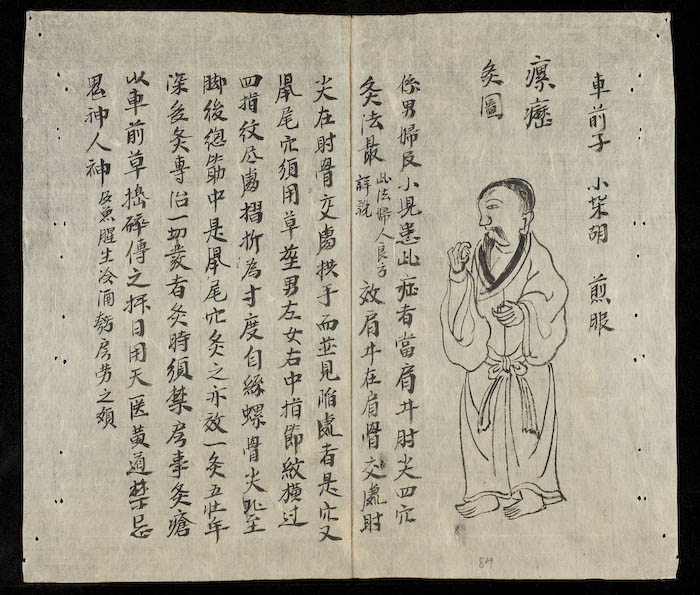 車前子 小柴胡 煎服
瘰癧
灸圖
係男婦及小児患此症者當肩井肘尖四穴
灸法最此法婦人良方詳說效肩井在肩骨交處肘
尖在肘骨交處拱手而並見陷處者是穴又
鼠尾穴須用草莖男左女右中指節紋橫过
四指紋尽處摺折為寸度自絲螺骨尖比至
脚後總筋中是鼠尾穴灸之亦效一灸五壮年
深多灸專治一切發者灸時須禁房事灸瘡
以車前草搗碎傅之擇日用天医黄道禁忌
鬼神人神及魚腥生冷酒麪房劳之類
84